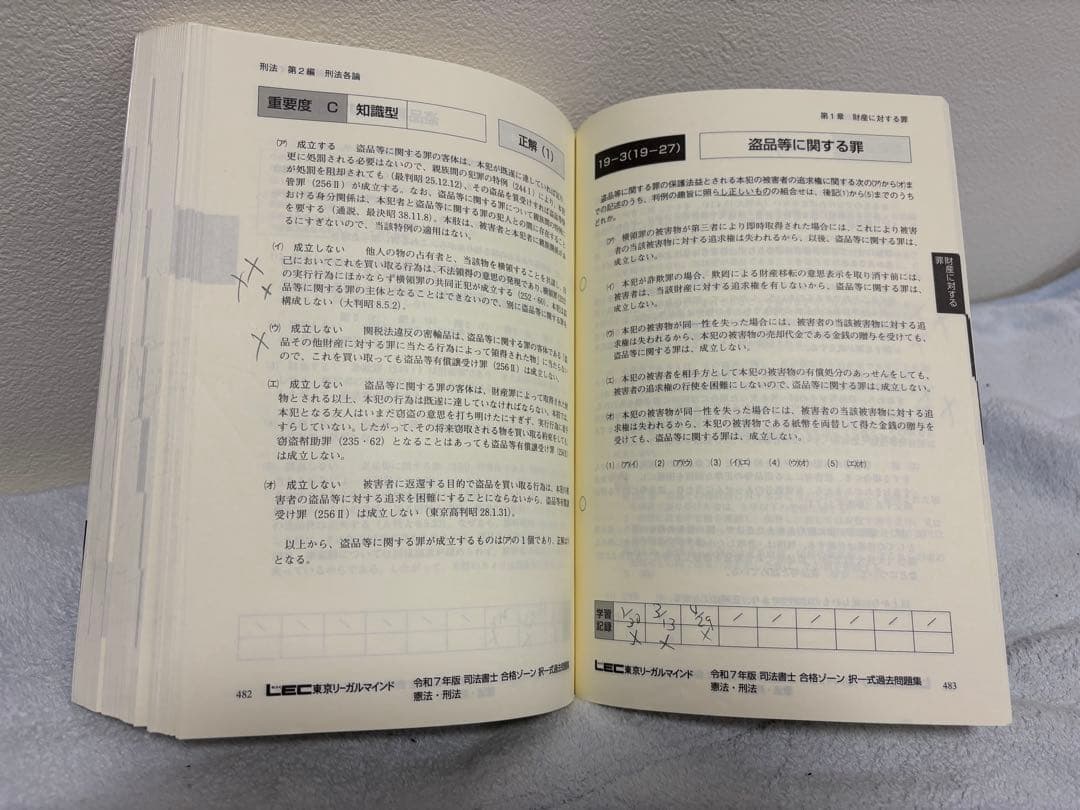 刑法 第2編 刑法各論
重要度 C 知識型
正解(1)
(ア) 成立する 盗品等に関する罪の客体は、本犯が既遂に達していれば足り
更に処罰される必要はないので、親族間の犯罪の特例(244Ⅰ)により
が処罰を阻却されても(最判昭25.12.12)、その盗品を質受けすれば盗品等
管罪(256Ⅱ)が成立する。なお、盗品等に関する罪について親族間の特例に
おける身分関係は、本犯者と盗品等に関する罪の犯人との間に存在すること
を要する(通説、最決昭38.11.8)。本肢は、被害者と本犯者に親族関係がある
にすぎないので、当該特例の適用はない。
(イ) 成立しない 他人の物の占有者と、当該物を横領することを共謀し、自
己においてこれを買い取る行為は、不法領得の意思の発現であり、横領罪
の実行行為にほかならず横領罪の共同正犯が成立する(252・60)。本犯は盗
品等に関する罪の主体となることはできないので、別に盗品等に関する罪を
構成しない(大判昭8.5.2)。
(ウ) 成立しない 関税法違反の密輸品は、盗品等に関する罪の客体である「盗
品その他財産に対する罪に当たる行為によって領得された物」に当たらない
ので、これを買い取っても盗品等有償譲受け罪(256Ⅱ)は成立しない。
(エ) 成立しない 盗品等に関する罪の客体は、財産罪によって取得された財
物とされる以上、本犯の行為は既遂に達していなければならない。本肢では、
本犯となる友人はいまだ窃盗の意思を打ち明けたにすぎず、実行行為に着手
すらしていない。したがって、その将来窃取される物を買い取る約束をしても、
窃盗幇助罪(235・62)となることはあっても盗品等有償譲受け罪(256Ⅱ)
は成立しない。
(オ) 成立しない 被害者に返還する目的で盗品を買い取る行為は、本犯の被
害者の盗品等に対する追求を困難にすることにならないから、盗品等有償譲
受け罪(256Ⅱ)は成立しない(東京高判昭28.1.31)。
以上から、盗品等に関する罪が成立するものは(ア)の1個であり、正解は(1)
となる。
482 LEC東京リーガルマインド 令和7年版 司法書士 合格ゾーン 択一式過去問題集
憲法・刑法
第1章 財産に対する罪
19-3(19-27) 盗品等に関する罪
盗品等に関する罪の保護法益とされる本犯の被害者の追求権に関する次の(ア)から(オ)ま
での記述のうち、判例の趣旨に照らし正しいものの組合せは、後記(1)から(5)までのうち
どれか。
(ア) 横領罪の被害物が第三者により即時取得された場合には、これにより被害
者の当該被害物に対する追求権は失われるから、以後、盗品等に関する罪は、
成立しない。
(イ) 本犯が詐欺罪の場合、欺罔による財産移転の意思表示を取り消す前には、
被害者は、当該財産に対する追求権を有しないから、盗品等に関する罪は、
成立しない。
(ウ) 本犯の被害物が同一性を失った場合には、被害者の当該被害物に対する追
求権は失われるから、本犯の被害物の売却代金である金銭の贈与を受けても、
盗品等に関する罪は、成立しない。
(エ) 本犯の被害者を相手方として本犯の被害物の有償処分のあっせんをしても、
被害者の追求権の行使を困難にしないので、盗品等に関する罪は、成立しない。
(オ) 本犯の被害物が同一性を失った場合には、被害者の当該被害物に対する追
求権は失われるから、本犯の被害物である紙幣を両替して得た金銭の贈与を
受けても、盗品等に関する罪は、成立しない。
(1) (ア)(イ) (2) (ア)(ウ) (3) (イ)(エ) (4) (ウ)(オ) (5) (エ)(オ)
財産に対する罪
学習記録 1/30 3/13 4/29
× × ×
LEC東京リーガルマインド 令和7年版 司法書士 合格ゾーン 択一式過去問題集 483
憲法・刑法